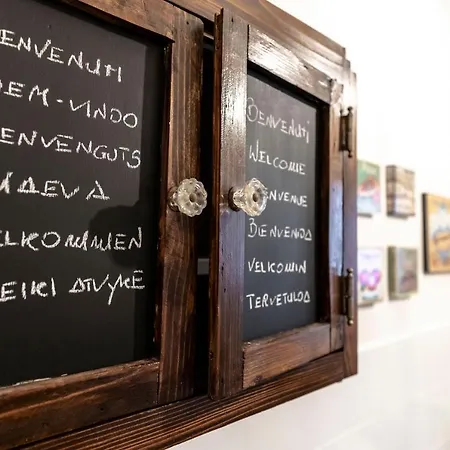 BENVENUTI
BEM-VINDO
BENVENGUTS
VELKOMMEN
SVEIKI ATVYKĘ
BENVENUTI
WELCOME
BIENVENUE
BIENVENIDA
VELKOMIN
TERVETULOA